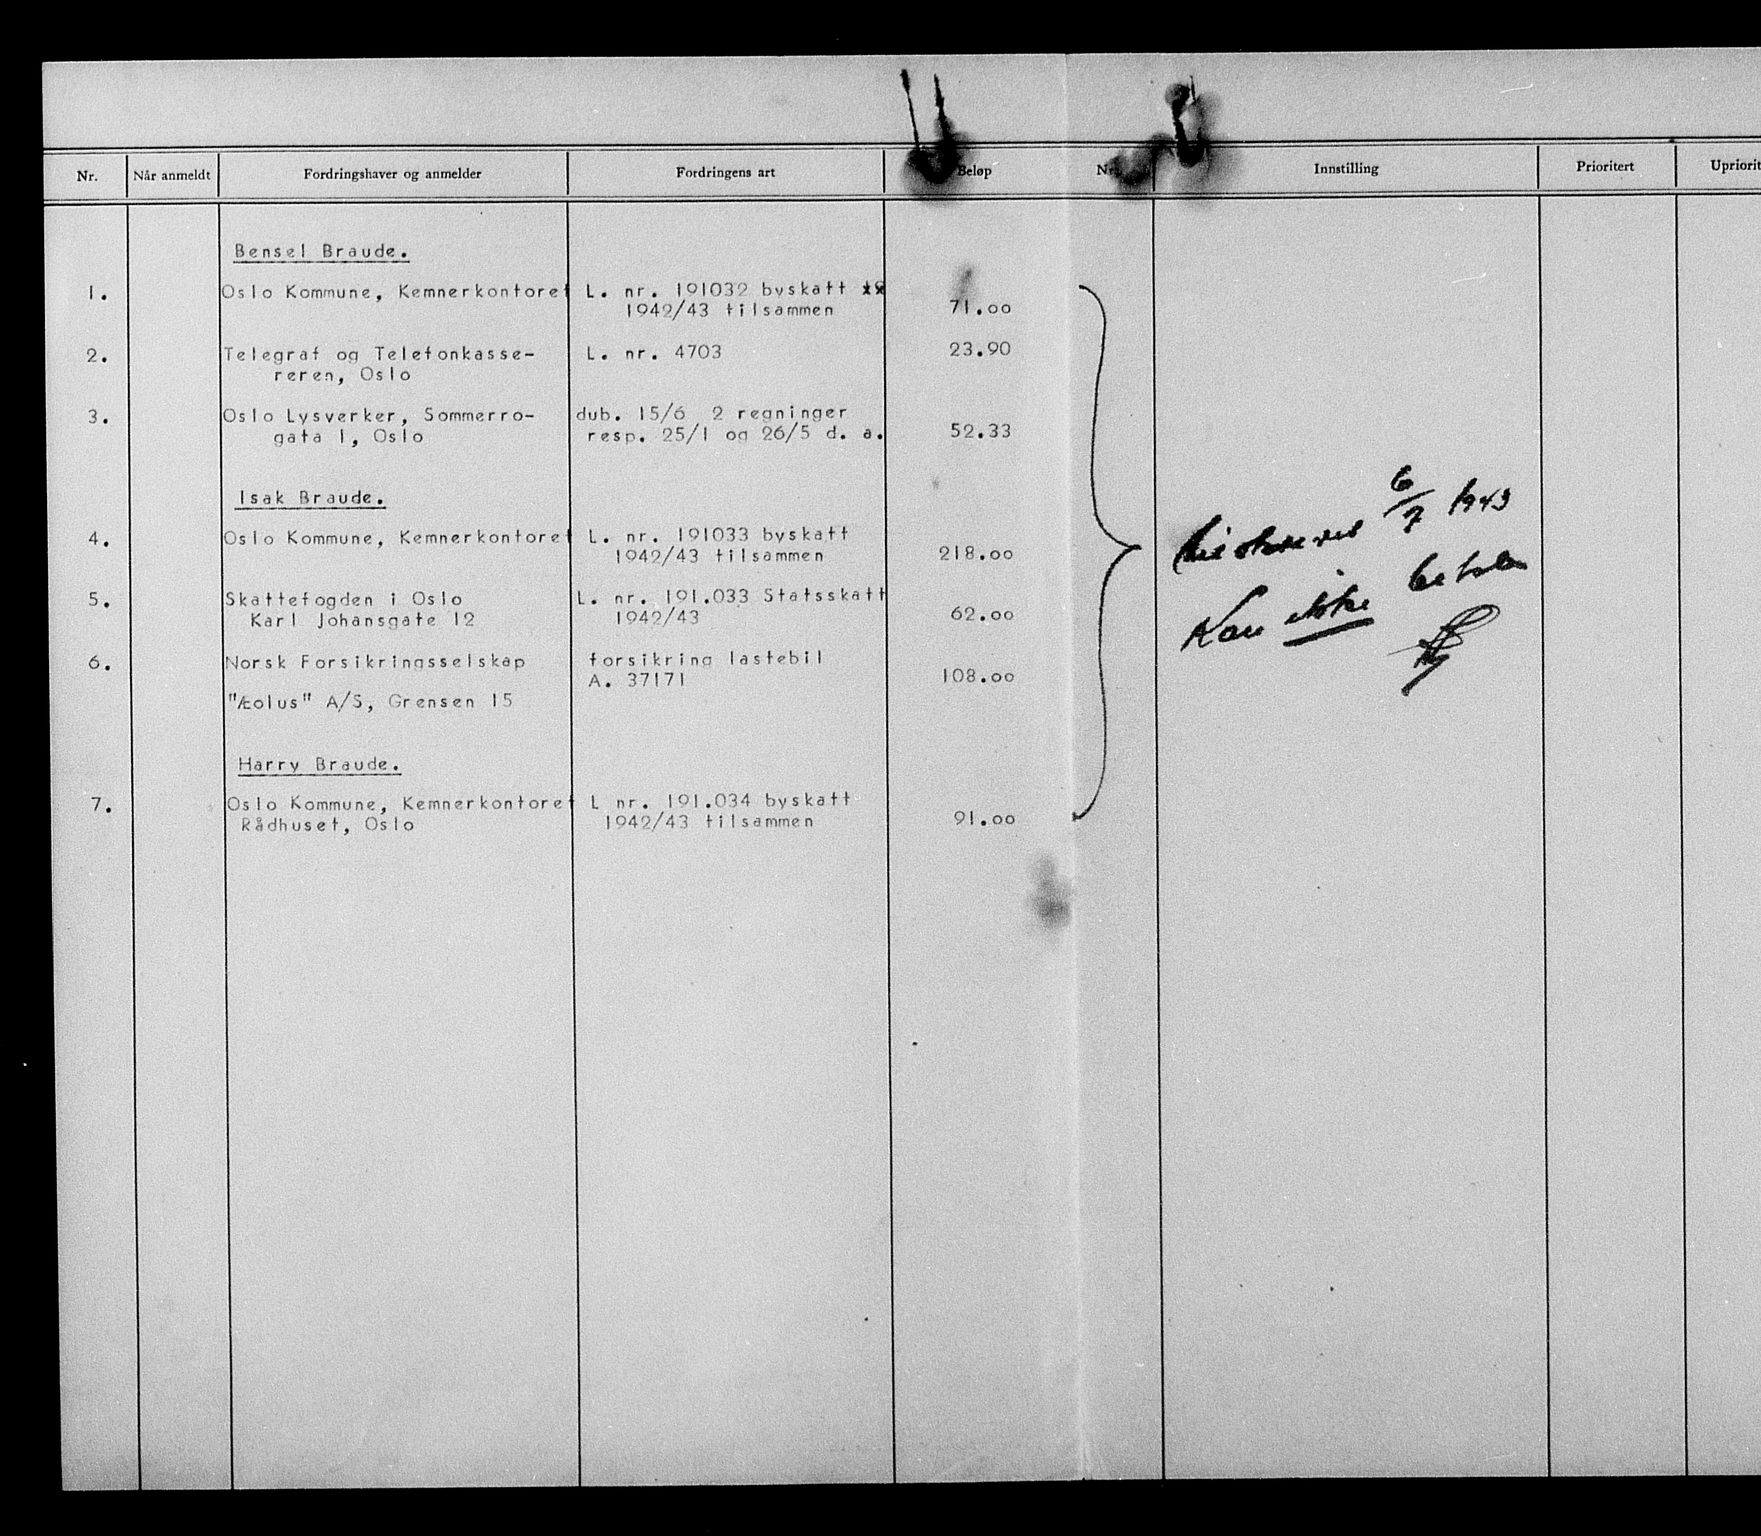 Nr. Når anmeldt Fordringshaver og anmelder Fordringens art Beløp Nr. Innstilling Prioritert Upriorit
Bensel Braude.
1. Oslo Kommune, Kemnerkontoret L. nr. 191032 byskatt
1942/43 tilsammen 71.00
2. Telegraf og Telefonkasse- L. nr. 4703 23.90
reren, Oslo
3. Oslo Lysverker, Sommerro- dub. 15/6 2 regninger
gata 1, Oslo resp. 25/1 og 26/5 d. a. 52.33
Isak Braude.
4. Oslo Kommune, Kemnerkontoret L. nr. 191033 byskatt
1942/43 tilsammen 218.00
5. Skattefogden i Oslo L. nr. 191.033 Statsskatt
Karl Johansgate 12 1942/43 62.00
6. Norsk Forsikringsselskap forsikring lastebil
A. 37171 108.00
"Æolus" A/S, Grensen 15
Harry Braude.
7. Oslo Kommune, Kemnerkontoret L nr. 191.034 byskatt
Rådhuset, Oslo 1942/43 tilsammen 91.00
6/7 1943
Kan ikke betales